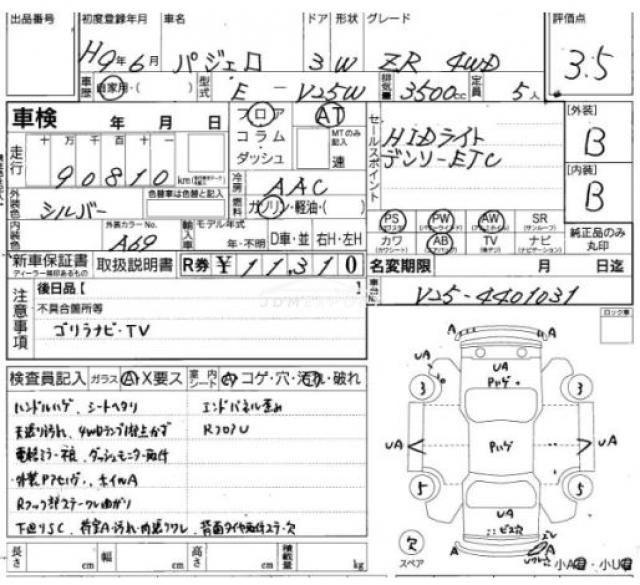 出品番号 初度登録年月 車名 ドア 形状 グレード 評価点
H9年6月 パジェロ 3 W ZR 4WD 3.5
車歴 自家用・( ) 型式 E-V25W 排気量 3500cc 定員 5人
車検 年 月 日
フロア AT
コラム MTのみ記入
ダッシュ 速
セールスポイント
HIDライト
デンソーETC
[外装]
B
[内装]
B
走行 十万千百十
90810 km
冷房 AAC
外装色 シルバー 色替車は色替と記入
燃料 ガソリン・軽油・( )
内装色 外装カラーNo. A69
輸入車 モデル年式 年・不明 D車・並 右H・左H
PS PW AW SR
(パワステ) (パワーウインド) (アルミホイル) (サンルーフ)
カワ AB TV ナビ
(カワシート) (エアバッグ) (ナビゲーション)
純正品のみ丸印
新車保証書 取扱説明書 R券 ¥11,310
ディーラー捺印あるもの
名変期限 月 日迄
車台No. V25-4401031
注意事項
後日品【 】
不具合箇所等
ゴリラナビ・TV
ロック車
検査員記入 ガラス A・X要ス 室内シート コゲ・穴・汚れ・破れ
ハンドルハゲ、シートヘタリ エンドパネル歪み
天張り汚れ、4WDランプ RフロアU
電格ミラー不良、ダッシュモニター取付
外装Pアセハゲ、ホイルA
下廻りSC、荷室A・汚れ・内張りワレ、背面タイヤ
A A
UA UA
Pハゲ
3 3
UA Pハゲ UA
5 5
UA
ビス穴
欠 A
スペア
小A有・小U有
長さ cm 幅 cm 高さ cm 積載量 kg